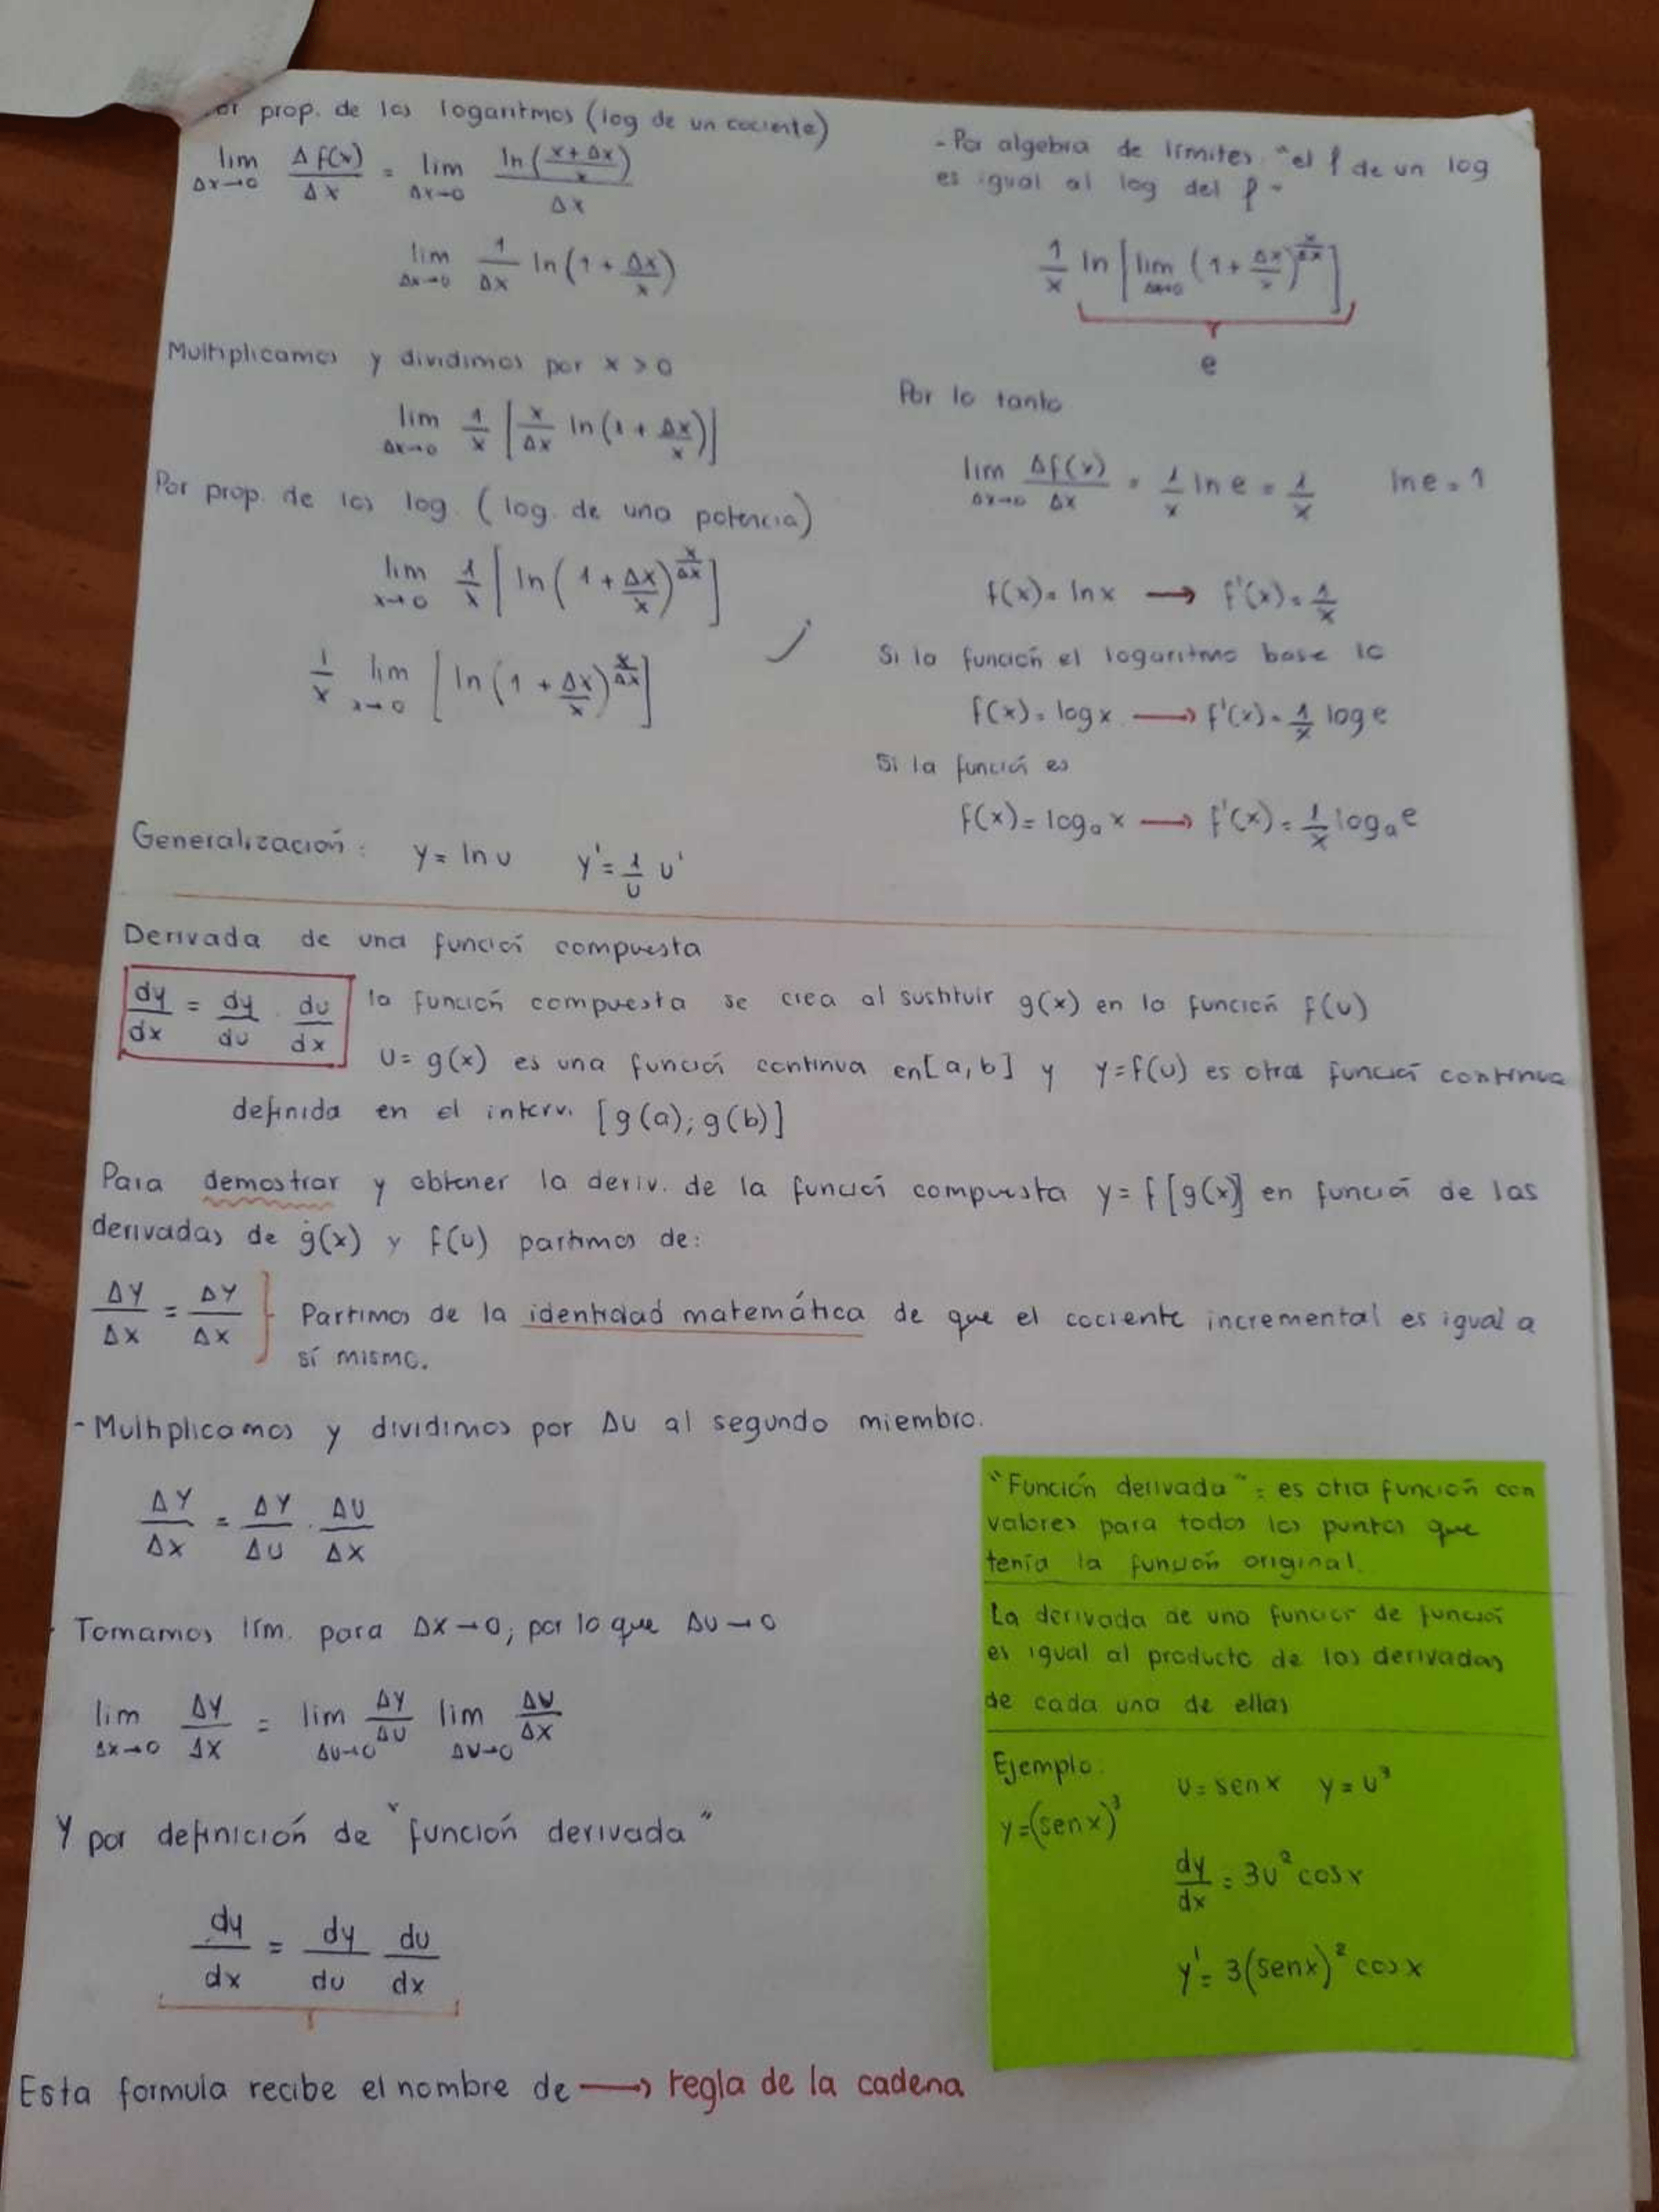 or prop. de los logaritmos (log de un cociente)
lim Δx→0 Δf(x)/Δx = lim Δx→0 ln((x+Δx)/x)/Δx
lim Δx→0 1/Δx ln(1 + Δx/x)
Multiplicamos y dividimos por x > 0
lim Δx→0 1/x [x/Δx ln(1 + Δx/x)]
Por prop. de los log. (log. de una potencia)
lim x→0 1/x [ln(1 + Δx/x)^(x/Δx)]
1/x lim x→0 [ln(1 + Δx/x)^(x/Δx)]
Generalización: y = ln u y' = 1/u u'
- Por algebra de límites "el l de un log
es igual al log del l"
1/x ln [lim Δx→0 (1 + Δx/x)^(x/Δx)]
e
Por lo tanto
lim Δx→0 Δf(x)/Δx = 1/x ln e = 1/x ln e = 1
f(x) = ln x → f'(x) = 1/x
Si la función el logaritmo base 10
f(x) = log x → f'(x) = 1/x log e
Si la función es
f(x) = logₐ x → f'(x) = 1/x logₐ e
Derivada de una función compuesta
dy/dx = dy/du . du/dx la función compuesta se crea al sustituir g(x) en la función f(u)
u = g(x) es una función continua en [a, b] y y = f(u) es otra función continua
definida en el interv. [g(a); g(b)]
Para demostrar y obtener la deriv. de la función compuesta y = f [g(x)] en función de las
derivadas de g(x) y f(u) partimos de:
ΔY/ΔX = ΔY/ΔX } Partimos de la identidad matemática de que el cociente incremental es igual a
sí mismo.
- Multiplicamos y dividimos por ΔU al segundo miembro.
ΔY/ΔX = ΔY/ΔU . ΔU/ΔX
Tomamos lím. para ΔX→0, por lo que ΔU→0
lim Δx→0 ΔY/ΔX = lim Δu→0 ΔY/ΔU lim Δu→0 ΔU/ΔX
Y por definición de "función derivada"
dy/dx = dy/du du/dx
Esta formula recibe el nombre de → regla de la cadena
"Función derivada": es otra función con
valores para todos los puntos que
tenía la función original.
La derivada de una función de función
es igual al producto de las derivadas
de cada una de ellas
Ejemplo: u = sen x y = u³
y = (sen x)³
dy/dx = 3u² cos x
y' = 3(sen x)² cos x